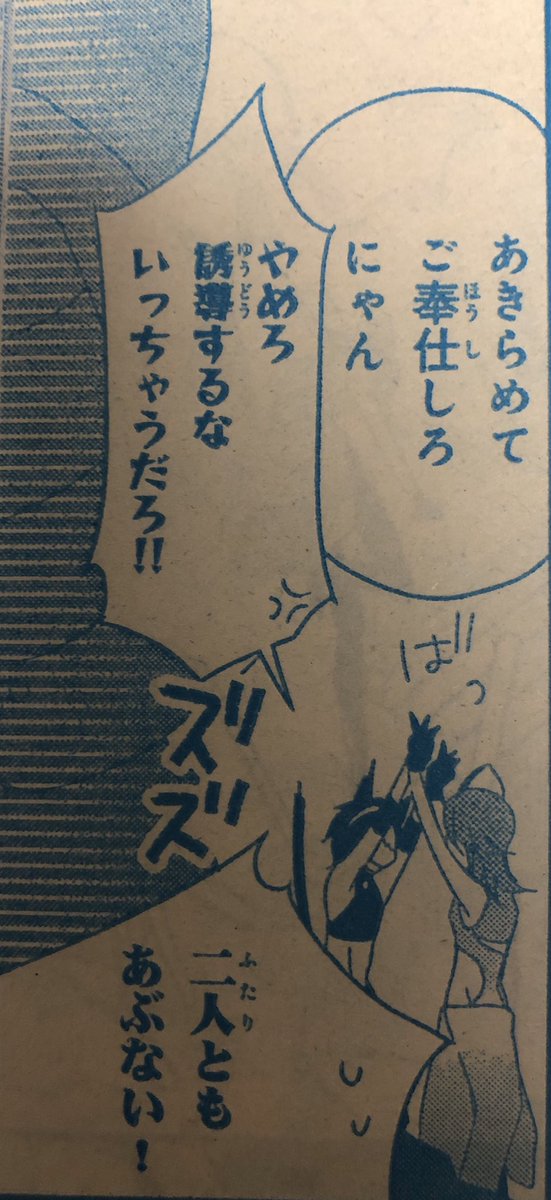 あきらめて
ご奉仕しろ
にゃん
やめろ
誘導するな
いっちゃうだろ!!
ばっ
ズリ
ズリ
二人とも
あぶない!